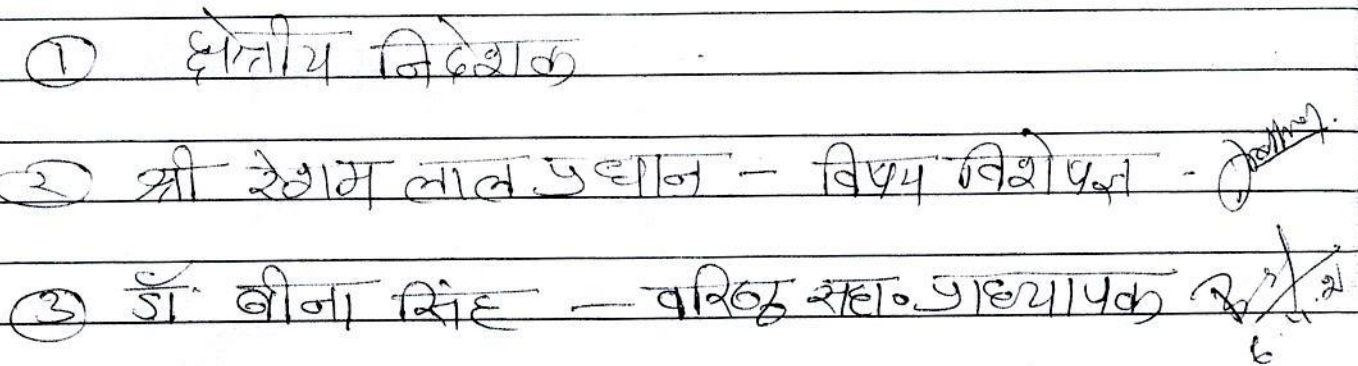 ① क्षेत्रीय निदेशक
② श्री रेशम लाल प्रधान - विषय विशेषज्ञ -
③ डॉ. बीना सिंह - वरिष्ठ सहा. प्राध्यापक